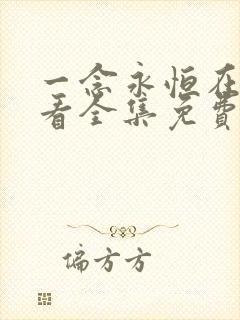 一念永恒在
看全集免费
偏方方